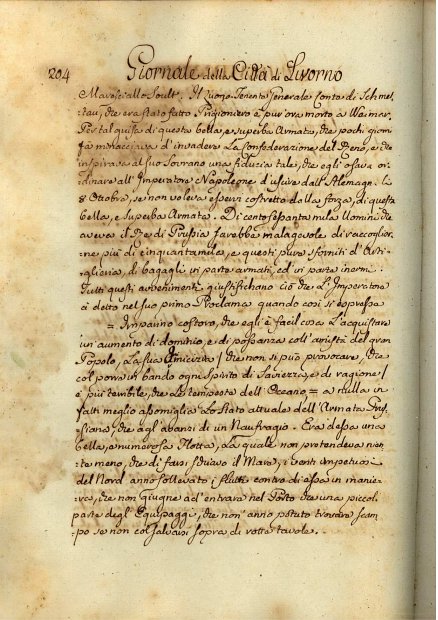 204 Giornale della Città di Livorno
Maresciallo Soult. Il Luogo Tenente Generale Conte di Schmet-
tau, che era stato fatto Prigioniero è pur' ora morto a Weimar.
Per tal guisa di questa bella, e superba Armata, che pochi giorni
fà minacciava d'invadere la Confederazione del Reno, e che
inspirava al suo Sovrano una fiducia tale, che egli osava or-
dinare all' Imperatore Napoleone d'uscire dall' Alemagna li
8 Ottobre, se non voleva esservi costretto dalla forza, di questa
bella, e superba Armata. Di centosessanta mila Uomini che
aveva il Re di Prussia sarebbe malagevole di raccoglier-
ne più di cinquantamila, e questi pure sforniti d'Arti-
glieria, di bagagli in parte armati, ed in parte inermi.
Tutti questi avvenimenti giustifichano ciò che l'Imperatore
ci dette nel suo primo Proclama quando così si espresse
= Imparino costoro, che egli è facil cosa l'acquistare
un' aumento di dominio, e di possanza coll' amistà del gran
Popolo, la sua Inimicizia / che non si può provocare, che
col porre in bando ogni spirito di Saviezza, e di ragione /
è più terribile, che le tempeste dell' Oceano = a nulla in
fatti meglio assomiglia lo stato attuale dell' Armata Prus-
siana, che agl' avanzi di un Naufragio. Era dessa una
bella, e numerosa Flotta, la quale non pretendeva nien-
te meno, che di farsi schiavo il Mare, i venti impetuosi
del Nord anno sollevato i flutti contro di essa in manie-
ra, che non giugne ad entrare nel Porto che una piccola
parte degl' Equipaggi, che non anno potuto trovare scam-
po se non col salvarsi sopra di rotte tavole.